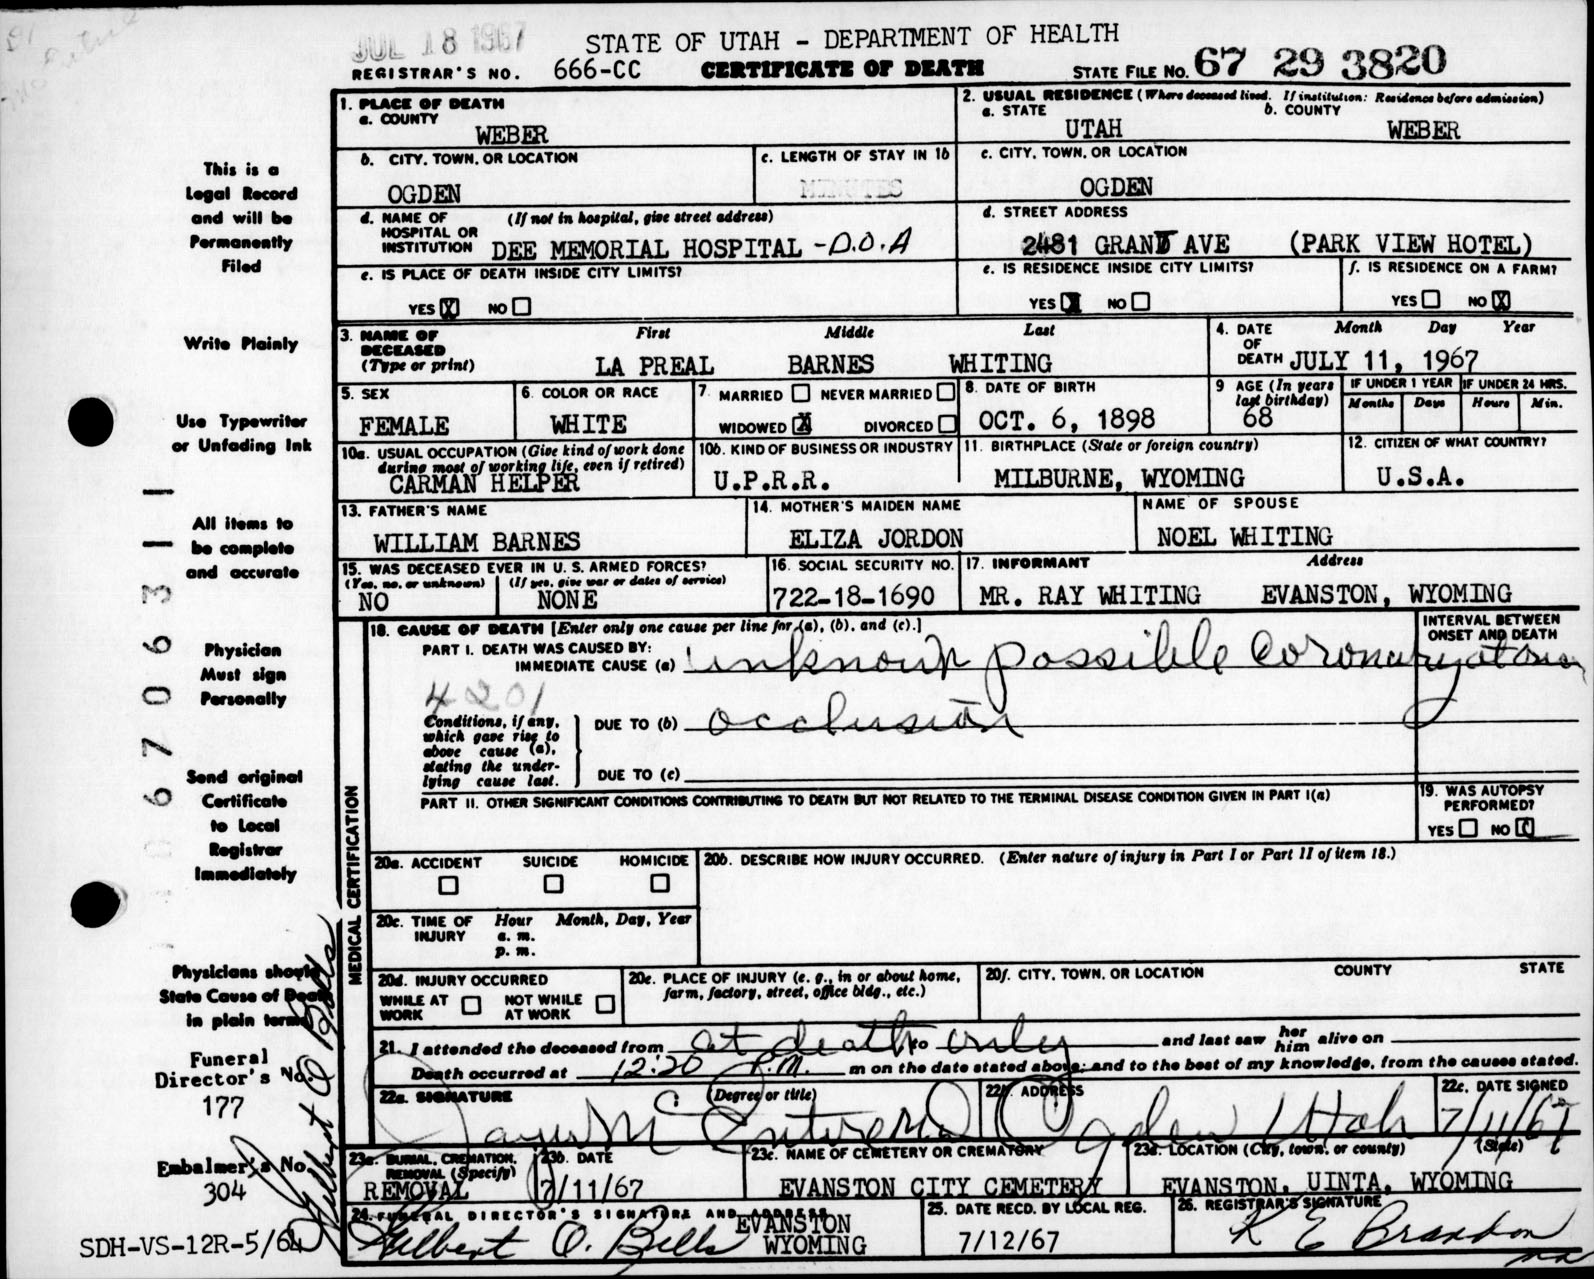 JUL 18 1967
STATE OF UTAH - DEPARTMENT OF HEALTH
REGISTRAR'S NO. 666-CC CERTIFICATE OF DEATH STATE FILE NO. 67 29 3820
1. PLACE OF DEATH
a. COUNTY
WEBER
2. USUAL RESIDENCE (Where deceased lived. If institution: Residence before admission)
a. STATE b. COUNTY
UTAH WEBER
b. CITY, TOWN, OR LOCATION
OGDEN
c. LENGTH OF STAY IN 1b
MINUTES
c. CITY, TOWN, OR LOCATION
OGDEN
d. NAME OF HOSPITAL OR INSTITUTION (If not in hospital, give street address)
DEE MEMORIAL HOSPITAL - D.O.A
d. STREET ADDRESS
2481 GRANT AVE (PARK VIEW HOTEL)
e. IS PLACE OF DEATH INSIDE CITY LIMITS?
YES X NO
e. IS RESIDENCE INSIDE CITY LIMITS?
YES X NO
f. IS RESIDENCE ON A FARM?
YES NO X
3. NAME OF DECEASED (Type or print)
First Middle Last
LA PREAL BARNES WHITING
4. DATE OF DEATH Month Day Year
JULY 11, 1967
5. SEX
FEMALE
6. COLOR OR RACE
WHITE
7 MARRIED NEVER MARRIED
WIDOWED X DIVORCED
8. DATE OF BIRTH
OCT. 6, 1898
9 AGE (In years last birthday)
68
IF UNDER 1 YEAR IF UNDER 24 HRS.
Months Days Hours Min.
10a. USUAL OCCUPATION (Give kind of work done during most of working life, even if retired)
CARMAN HELPER
10b. KIND OF BUSINESS OR INDUSTRY
U.P.R.R.
11. BIRTHPLACE (State or foreign country)
MILBURNE, WYOMING
12. CITIZEN OF WHAT COUNTRY?
U.S.A.
13. FATHER'S NAME
WILLIAM BARNES
14. MOTHER'S MAIDEN NAME
ELIZA JORDON
NAME OF SPOUSE
NOEL WHITING
15. WAS DECEASED EVER IN U. S. ARMED FORCES?
(Yes, no, or unknown) (If yes, give war or dates of service)
NO NONE
16. SOCIAL SECURITY NO.
722-18-1690
17. INFORMANT Address
MR. RAY WHITING EVANSTON, WYOMING
MEDICAL CERTIFICATION
18. CAUSE OF DEATH [Enter only one cause per line for (a), (b), and (c).]
INTERVAL BETWEEN ONSET AND DEATH
PART I. DEATH WAS CAUSED BY:
IMMEDIATE CAUSE (a) unknown possible coronary
4201
Conditions, if any, which gave rise to above cause (a), stating the underlying cause last.
DUE TO (b) occlusion
DUE TO (c)
PART II. OTHER SIGNIFICANT CONDITIONS CONTRIBUTING TO DEATH BUT NOT RELATED TO THE TERMINAL DISEASE CONDITION GIVEN IN PART I(a)
19. WAS AUTOPSY PERFORMED?
YES NO
20a. ACCIDENT SUICIDE HOMICIDE
20b. DESCRIBE HOW INJURY OCCURRED. (Enter nature of injury in Part I or Part II of item 18.)
20c. TIME OF INJURY Hour Month, Day, Year
a. m.
p. m.
20d. INJURY OCCURRED
WHILE AT WORK NOT WHILE AT WORK
20e. PLACE OF INJURY (e. g., in or about home, farm, factory, street, office bldg., etc.)
20f. CITY, TOWN, OR LOCATION COUNTY STATE
21. I attended the deceased from at death to only and last saw her him alive on
Death occurred at 12:20 P.M. m on the date stated above; and to the best of my knowledge, from the causes stated.
22a. SIGNATURE (Degree or title)
22b. ADDRESS
Ogden Utah
22c. DATE SIGNED
7/11/67
23a. BURIAL, CREMATION, REMOVAL (Specify)
REMOVAL
23b. DATE
7/11/67
23c. NAME OF CEMETERY OR CREMATORY
EVANSTON CITY CEMETERY
23d. LOCATION (City, town, or county) (State)
EVANSTON, UINTA, WYOMING
24. FUNERAL DIRECTOR'S SIGNATURE AND ADDRESS
Gilbert O. Bills EVANSTON WYOMING
25. DATE RECD. BY LOCAL REG.
7/12/67
26. REGISTRAR'S SIGNATURE
K E Brandon
This is a
Legal Record
and will be
Permanently
Filed
Write Plainly
Use Typewriter
or Unfading Ink
All items to
be complete
and accurate
Physician
Must sign
Personally
Send original
Certificate
to Local
Registrar
Immediately
Physicians should
State Cause of Death
in plain terms
Funeral
Director's No.
177
Embalmer's No.
304
Gilbert O Bills
SDH-VS-12R-5/64